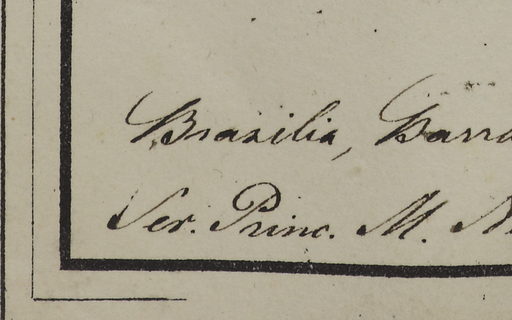 Brasilia, Barra
Ser. Princ. M.